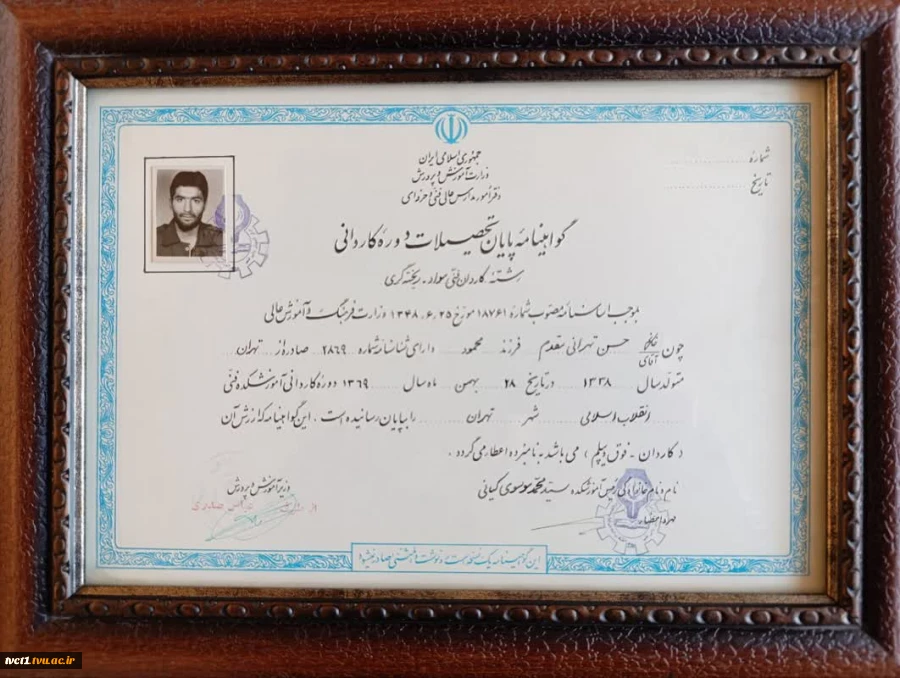 شمارهٔ
تاریخ
جمهوری اسلامی ایران
وزارت آموزش و پرورش
دفتر امور مدارس عالی فنی و حرفه‌ای
گواهینامهٔ پایان تحصیلات دورهٔ کاردانی
رشتهٔ کاردان فنی مواد - ریخته گری
بموجب اساسنامه مصوب شمارهٔ ۱۸۷۶۱ مورخ ۱۳۴۸،۶،۲۵ وزارت فرهنگ و آموزش عالی
چون خانم آقای حسن تهرانی مقدم فرزند محمود دارای شناسنامه شماره ۲۸۶۹ صادره از تهران
متولد سال ۱۳۳۸ در تاریخ ۲۸ بهمن ماه سال ۱۳۶۹ دوره کاردانی آموزشکده فنی
انقلاب اسلامی شهر تهران را بپایان رسانیده است. این گواهینامه که ارزش آن
(کاردان - فوق دیپلم) می باشد به نامبرده اعطا می گردد.
نام و نام خانوادگی رئیس آموزشکده سید محمد موسوی کیانی
مهر و امضاء
وزیر آموزش و پرورش
از طرف عباس صدری
این گواهینامه یک نسخه است و رونوشت المثنی صادر نمیشود
tvct1.tvu.ac.ir